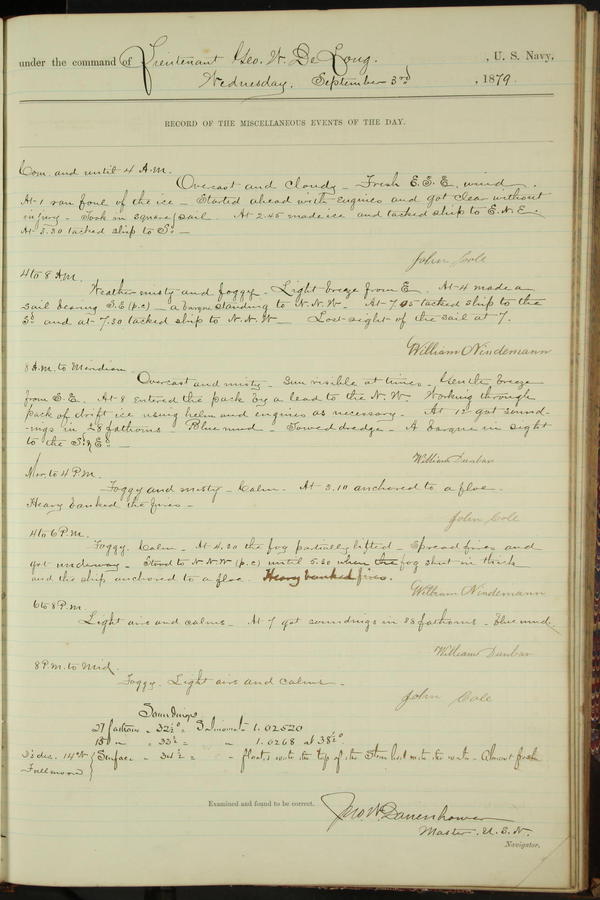 under the command of Lieutenant Geo. W. De Long. , U. S. Navy,
Wednesday, September 3rd , 1879.
RECORD OF THE MISCELLANEOUS EVENTS OF THE DAY.
Com. and until 4 A.M.
Overcast and cloudy – Fresh E.S.E. wind.
At 1 ran foul of the ice – Started ahead with Engines and got clear without
injury – Took in squaresail. At 2.45 made ice and tacked ship to E.N.E.
At 3.30 tacked ship to Sd –
John Cole
4 to 8 A.M.
Weather misty and foggy – Light breeze from E. At 4 made a
sail bearing S.E (p.c) – a barque standing to N.N.W – At 7.05 tacked ship to the
Sd and at 7.30 tacked ship to N.N.W – Lost sight of the sail at 7.
William Nindemann
8 A.M. to Meridian
Overcast and misty – Sun visible at times – Gentle breeze
from S.E. At 8 entered the pack by a lead to the N.W. Working through
pack of drift ice using helm and engines as necessary. At 12 got sound-
-ings in 28 fathoms – Blue mud – Towed dredge – A barque in sight
to the Sd & Ed –
William Dunbar
Mer. to 4 P.M.
Foggy and misty – Calm. At 3.10 anchored to a floe.
Heavy banked the fires –
John Cole
4 to 6 P.M.
Foggy. Calm – At 4.30 the fog partially lifted – Spread fires and
got underway – Stood to N.N.W (p.c) until 5.30 when the fog shut in thick
and the ship anchored to a floe. Heavy banked fires.
William Nindemann
6 to 8 P.M.
Light airs and calms – At 7 got soundings in 28 fathoms – Blue mud
William Dunbar
8 P.M. to Mid.
Foggy. Light airs and calms –
John Cole
Soundings
27 fathoms – 32½° = 1.02520
15 " = 33½ = " – 1.0268 at 38½°
Surface – 34½ = " – floated with the top of the with the water – Almost fresh
Full moon
Examined and found to be correct.
Jno. W. Danenhower
Master. U.S.N.
Navigator.